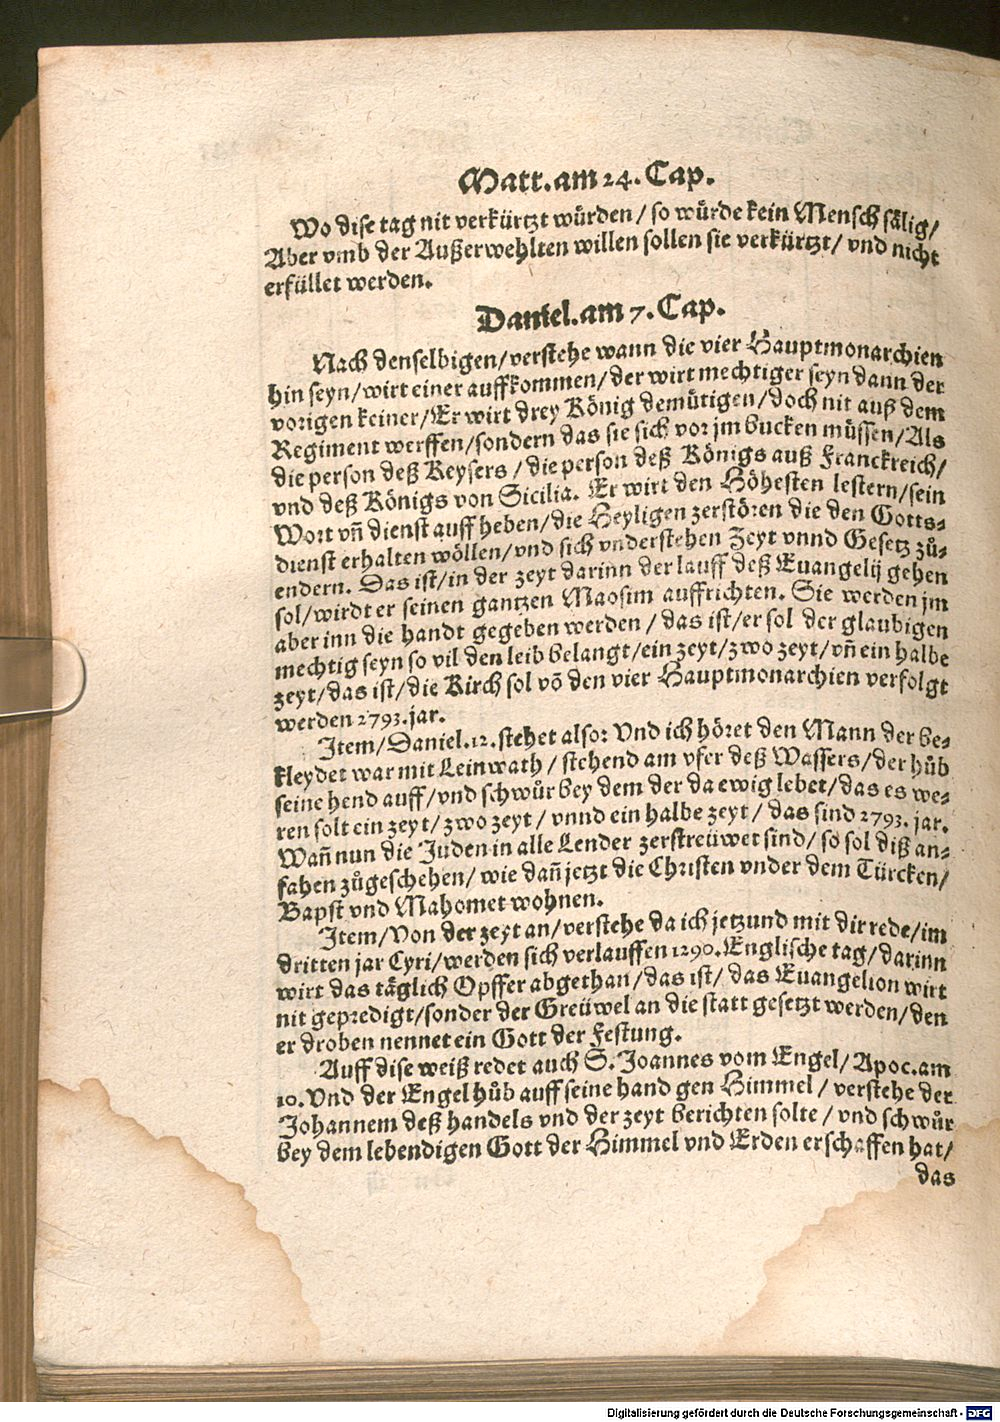 Matt. am 24. Cap.
Wo dise tag nit verkürtzt würden / so würde kein Mensch sälig /
Aber vmb der Außerwehlten willen sollen sie verkürtzt / vnd nicht
erfüllet werden.
Daniel. am 7. Cap.
Nach denselbigen / verstehe wann die vier Hauptmonarchien
hin seyn / wirt einer auffkommen / der wirt mechtiger seyn dann der
vorigen keiner / Er wirt drey König demütigen / doch nit auß dem
Regiment werffen / sondern das sie sich vor jm bucken müssen / Als
die person deß Keysers / die person deß Königs auß Franckreich /
vnd deß Königs von Sicilia. Er wirt den Höhesten lestern / sein
Wort vñ dienst auff heben / die Heyligen zerstören die den Gotts-
dienst erhalten wöllen / vnd sich vnderstehen Zeyt vnnd Gesetz zů-
endern. Das ist / in der zeyt darinn der lauff deß Euangelij gehen
sol / wirdt er seinen gantzen Maosim auffrichten. Sie werden jm
aber inn die handt gegeben werden / das ist / er sol der glaubigen
mechtig seyn so vil den leib belangt / ein zeyt / zwo zeyt / vñ ein halbe
zeyt / das ist / die Kirch sol võ den vier Hauptmonarchien verfolgt
werden 2793. jar.
Item / Daniel. 12. stehet also: Vnd ich höret den Mann der be-
kleydet war mit Leinwath / stehend am vfer deß Wassers / der hůb
seine hend auff / vnd schwůr bey dem der da ewig lebet / das es we-
ren solt ein zeyt / zwo zeyt / vnnd ein halbe zeyt / das sind 2793. jar.
Wañ nun die Juden in alle Lender zerstreüwet sind / so sol diß an-
fahen zůgeschehen / wie dañ jetzt die Christen vnder dem Türcken /
Bapst vnd Mahomet wohnen.
Item / Von der zeyt an / verstehe da ich jetzund mit dir rede / im
dritten jar Cyri / werden sich verlauffen 1290. Englische tag / darinn
wirt das täglich Opffer abgethan / das ist / das Euangelion wirt
nit gepredigt / sonder der Greüwel an die statt gesetzt werden / den
er droben nennet ein Gott der Festung.
Auff dise weiß redet auch S. Joannes vom Engel / Apoc. am
10. Vnd der Engel hůb auff seine hand gen Himmel / verstehe der
Johannem deß handels vnd der zeyt berichten solte / vnd schwůr
bey dem lebendigen Gott der Himmel vnd Erden erschaffen hat /
das
Digitalisierung gefördert durch die Deutsche Forschungsgemeinschaft - DFG